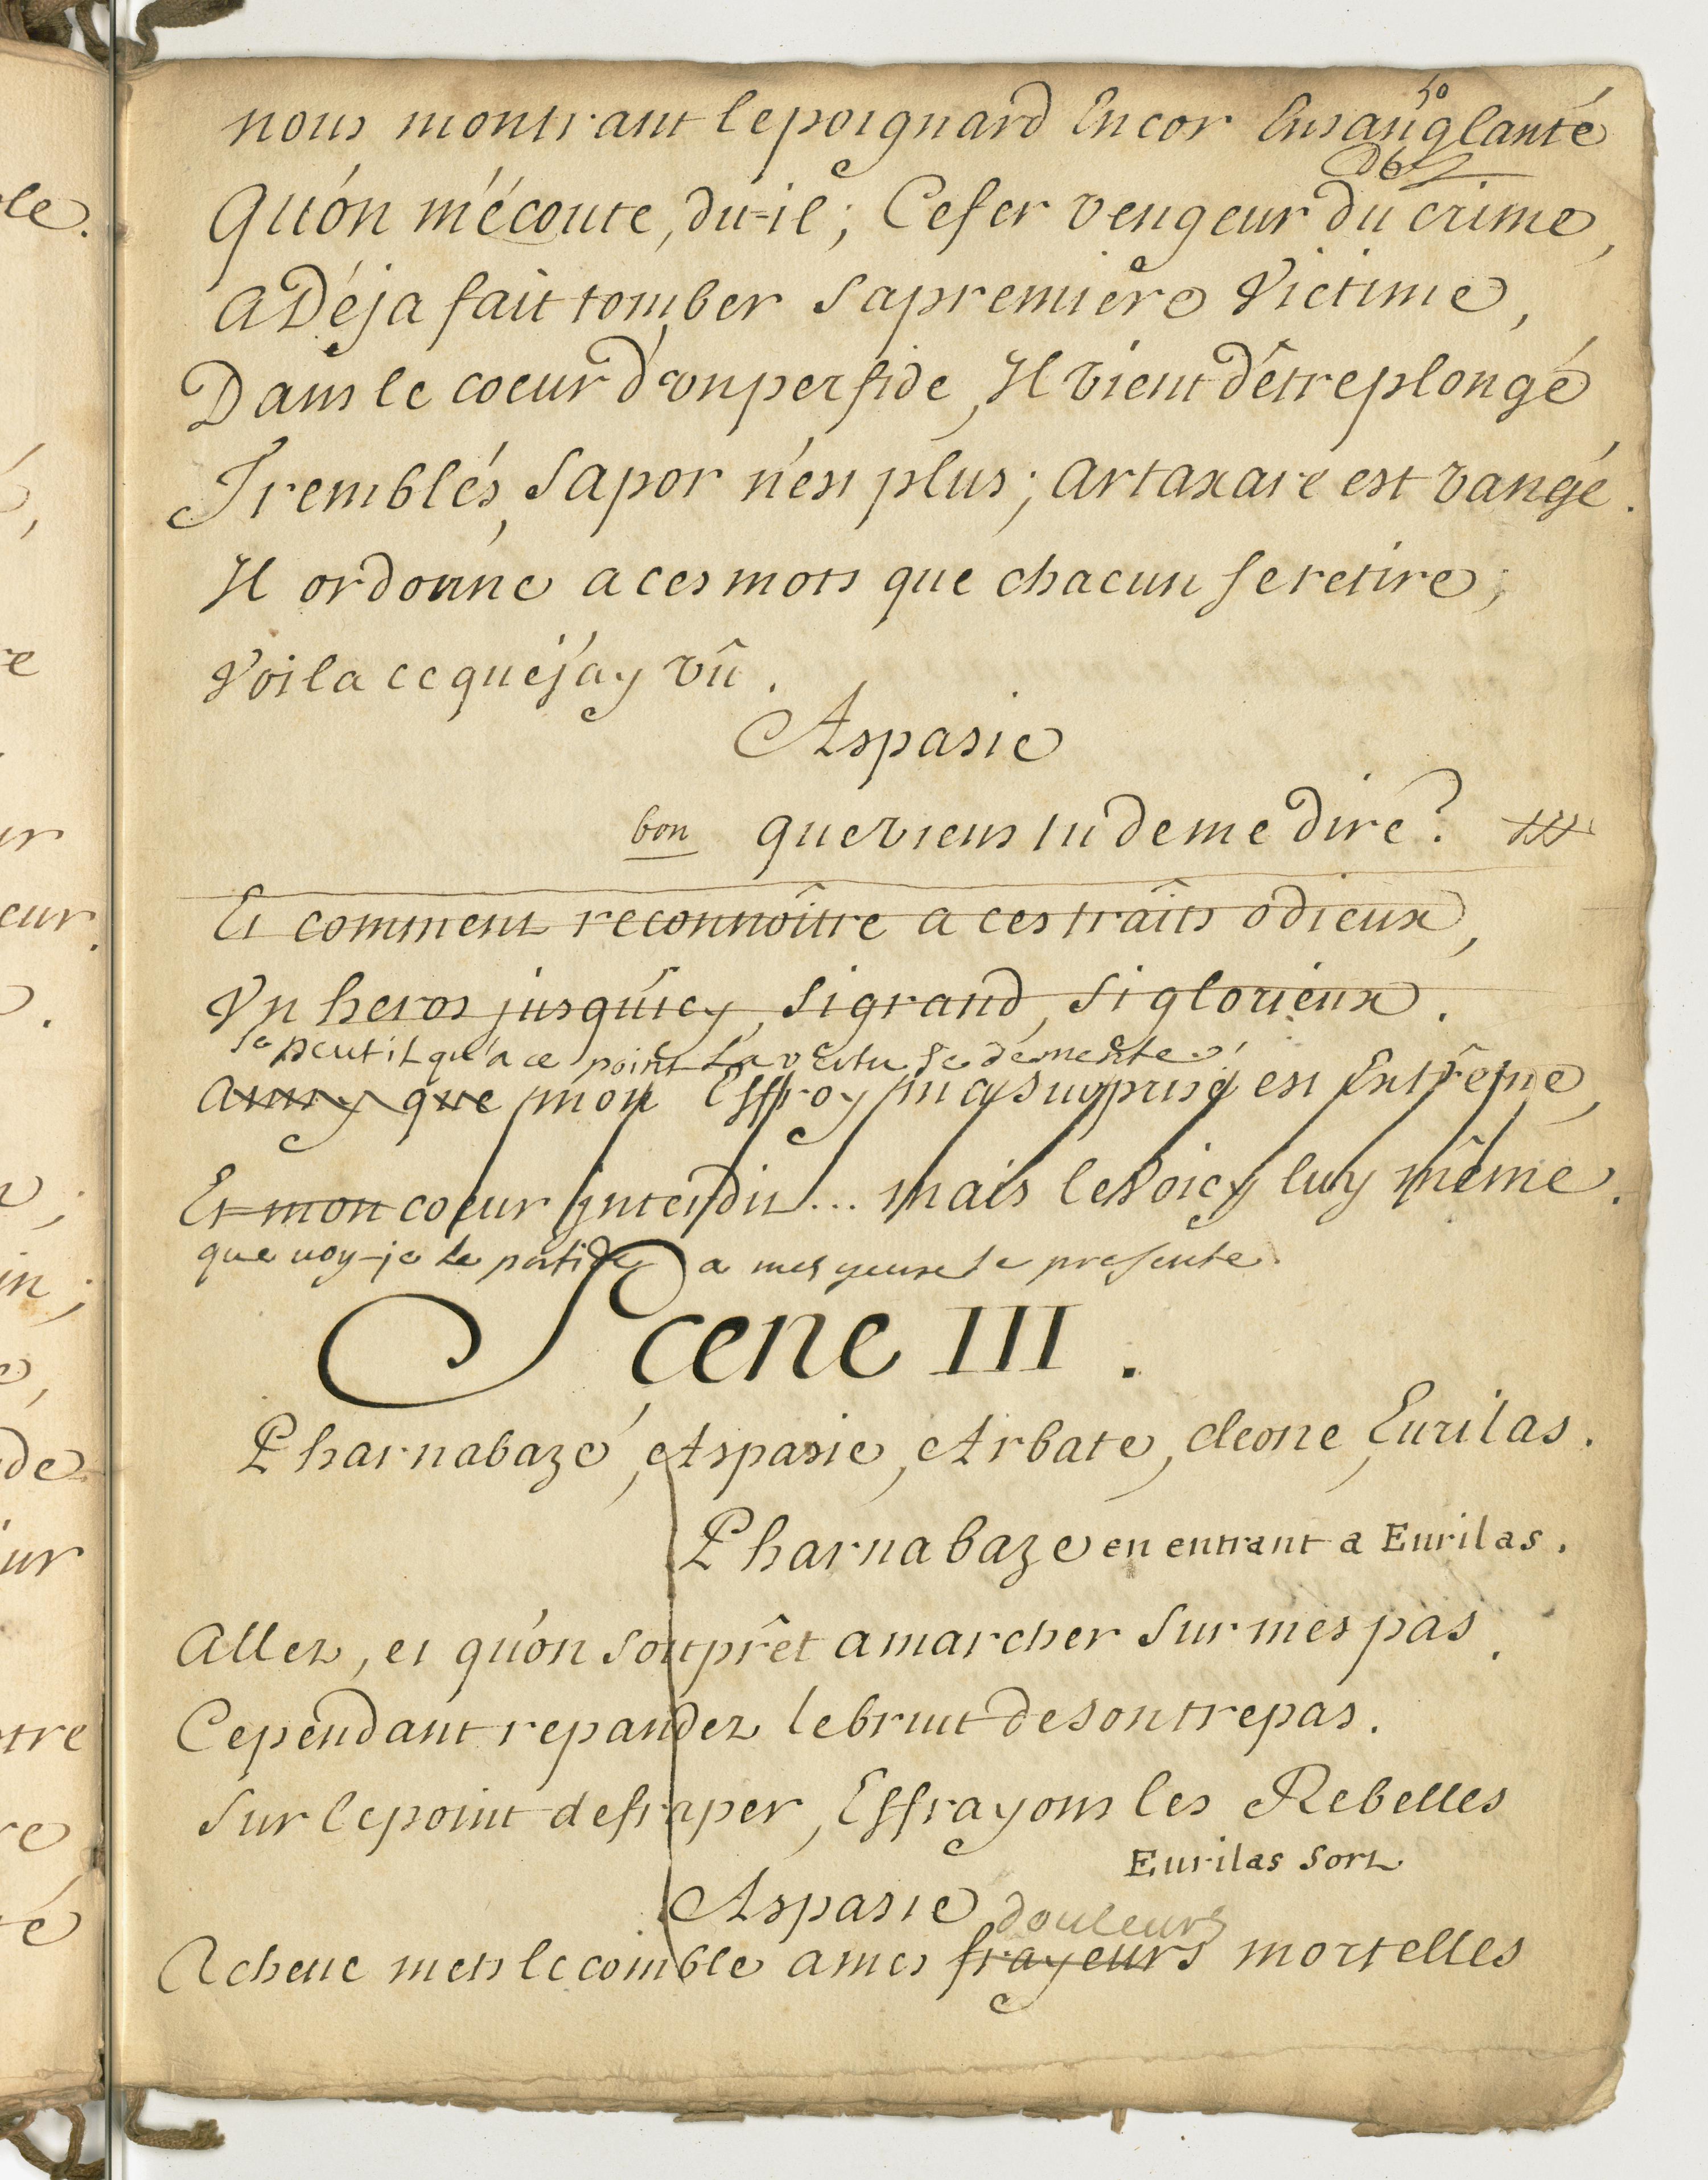 50
nous montrant le poignard Encor Ensanglanté
Qu'on m'écoute, dit-il; Ce fer vengeur du crime,
A Déja fait tomber Sa premiere Victime,
Dans le coeur d'un perfide, Il vient d'être plongé
Tremblés, Sapor n'est plus; Artaxare est vangé.
Il ordonne a ces mots que chacun se retire;
Voila ce que j'ay vû.
Aspasie
bon que viens tu de me dire?
Et comment reconnoître a ces traîts odieux,
Un heros jusqu'icy, Si grand, Si glorieux.
se peut il qu'a ce point la vertu se démente
Ainsy que mon Effroy ma surprise est Extrême,
Et mon coeur interdit... mais le Voicy luy même.
que voy-je le perfide a mes yeux se presente
Scene III.
Pharnabaze, Aspasie, Arbate, Cleone, Eurilas.
Pharnabaze en entrant a Eurilas.
Allez, et qu'on soit prêt a marcher Sur mes pas.
Cependant repandez le bruit de son trepas.
Sur le point de fraper, Effrayons les Rebelles
Eurilas Sort
Aspasie
douleurs
Acheve mets le comble a mes frayeurs mortelles